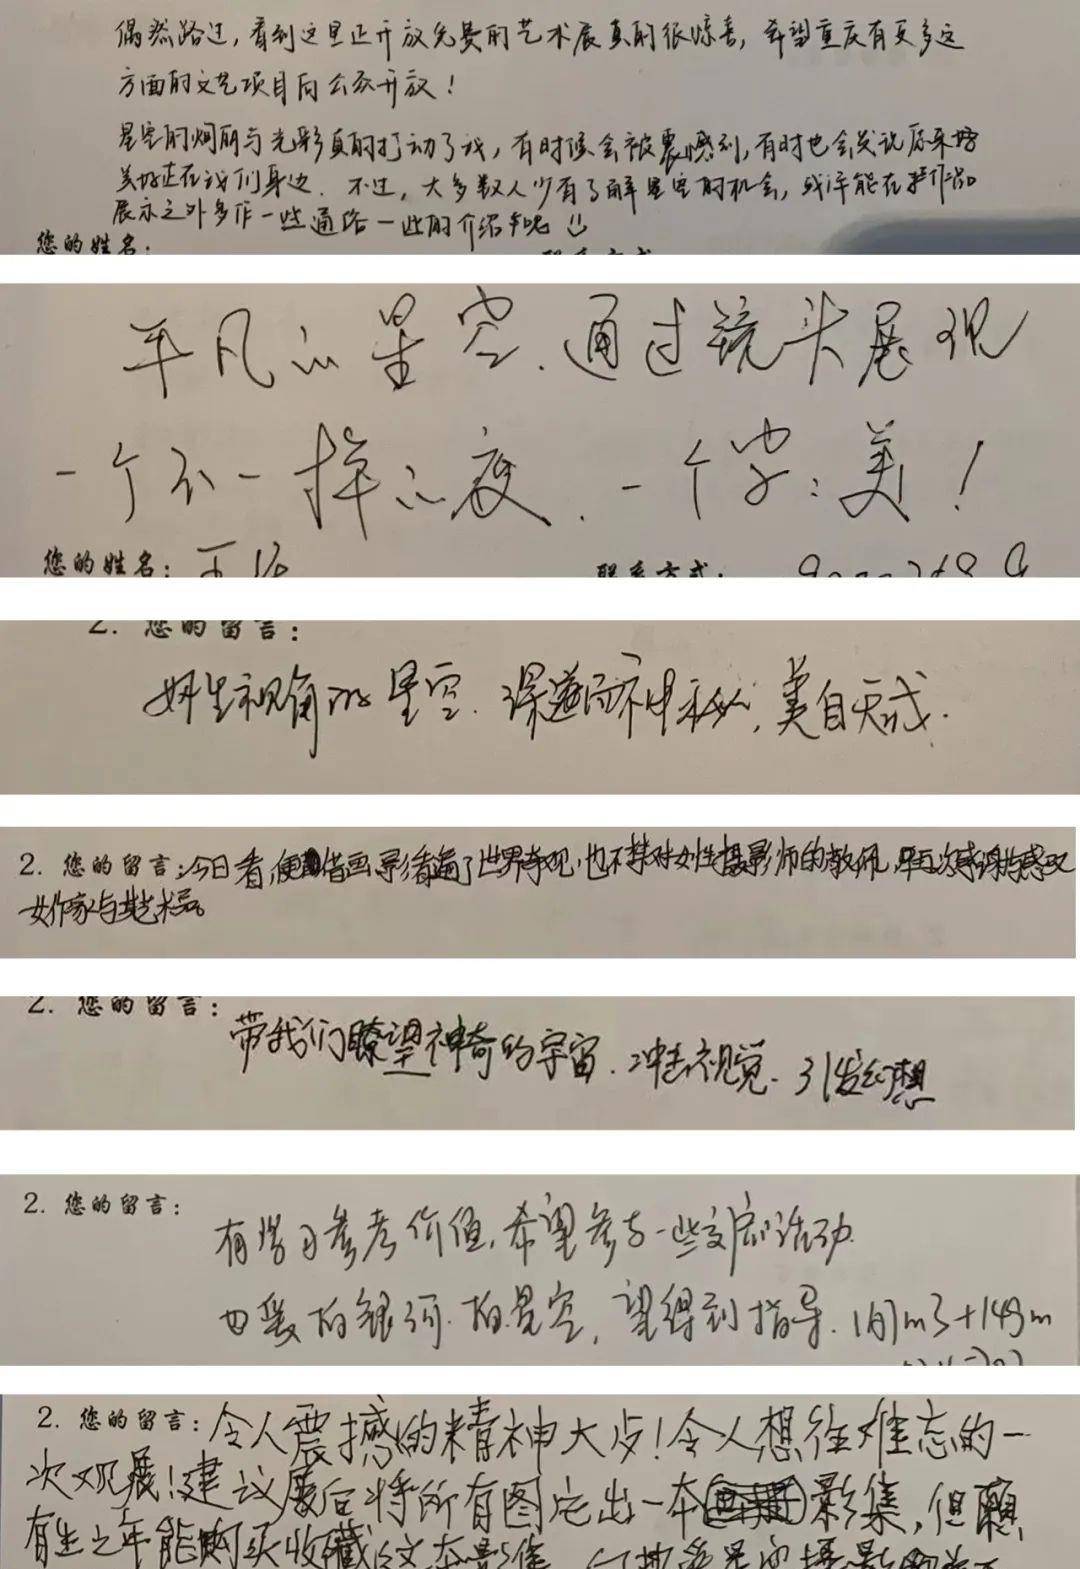 偶然路过，看到这里正开放免费的艺术展真的很惊喜，希望重庆有更多这
方面的文艺项目向公众开放！
星空的绚丽与光影真的打动了我，有时候会被震撼到，有时也会发说原来好
美好正在我们身边．不过，大多数人少有了解星空的机会，或许能在 作品
展示之外多作一些通俗一些的介绍 呢
您的姓名：
联系方式
平凡的星空．通过镜头展现
一个不一样的 度．一个字：美！
您的姓名：
联系方式：
2. 您的留言：
女生视角的星空．深邃而神秘，美自天成．
2. 您的留言：今日看，便 借画影看遍了世界奇观，也不禁对女性摄影师的敬佩， 再次感谢
女作家与其艺术品。
2. 您的留言：
带我们瞭望神奇的宇宙．冲击视觉．引发幻想
2. 您的留言：
有学习参考价值，希望参与一些 活动
也爱拍银河．拍星空，望得到指导．
2. 您的留言：令人震撼的精神大片！令人想往难忘的一
次观展！建议展后将所有图定出一本 影集，但愿
有生之年能购买收藏 本影集